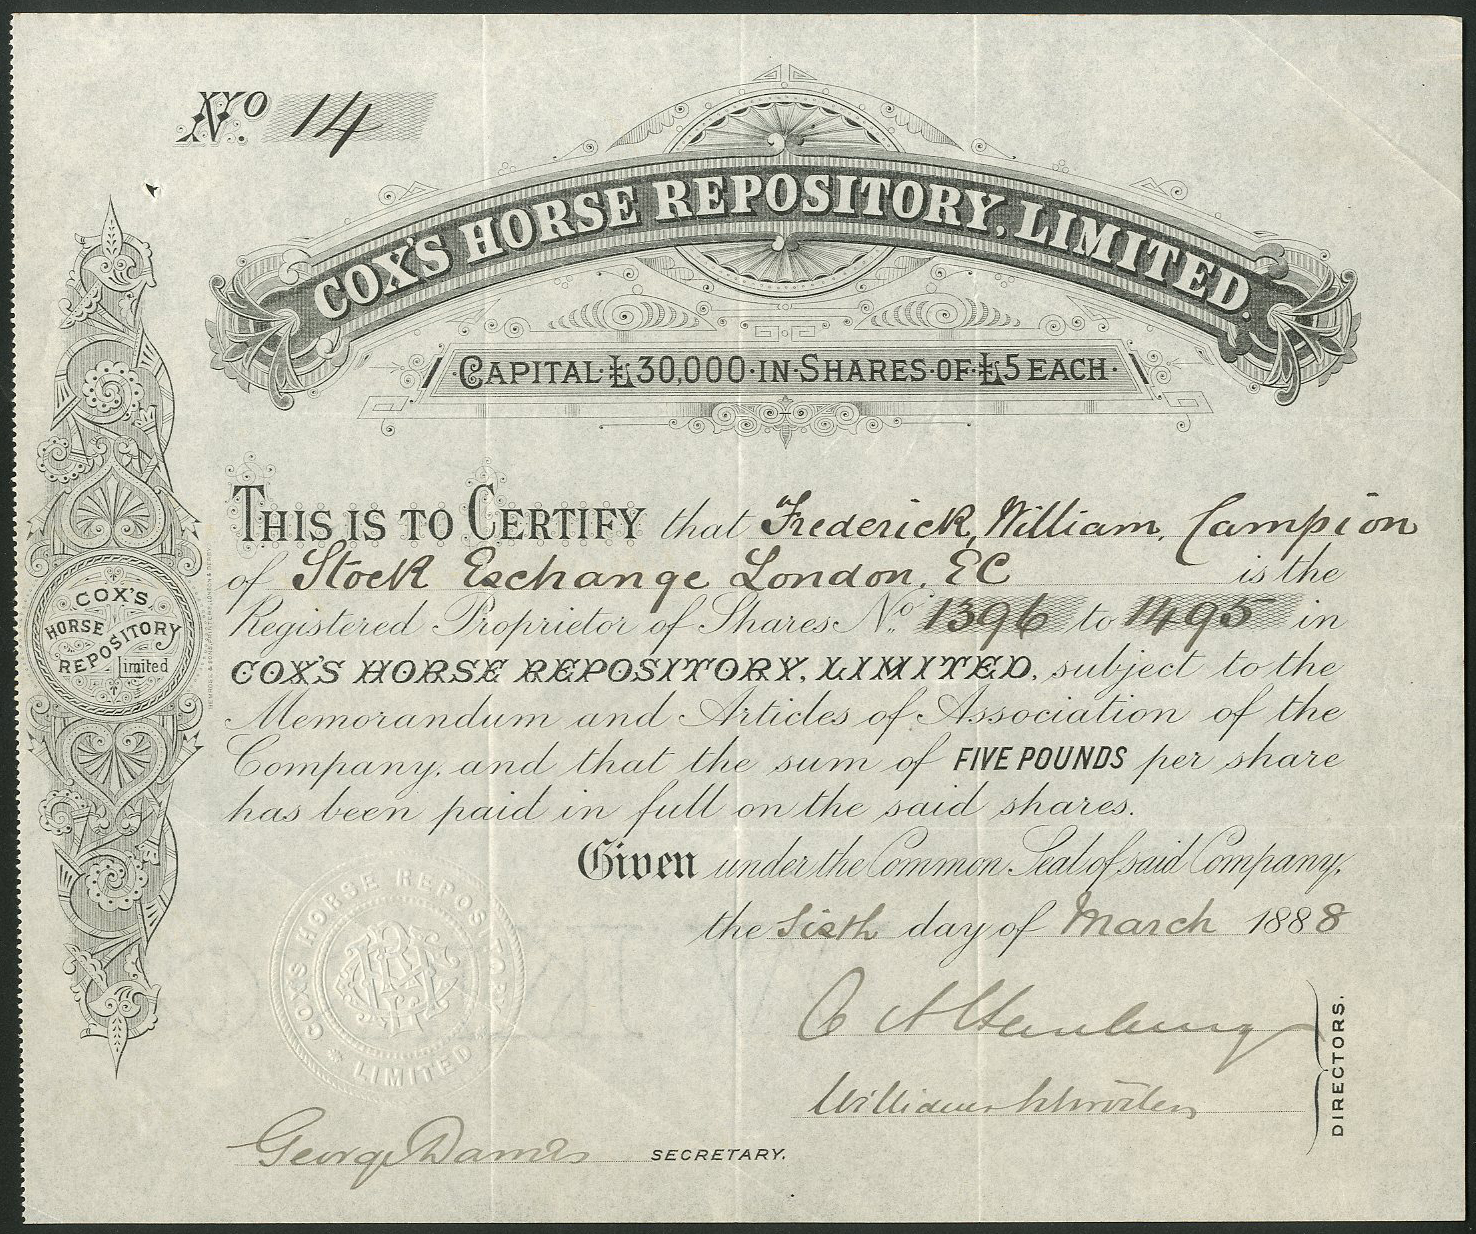 No. 14
COX'S HORSE REPOSITORY, LIMITED.
CAPITAL £30,000 IN SHARES OF £5 EACH
THIS IS TO CERTIFY that Frederick, William, Campion
of Stock Exchange London, EC is the
Registered Proprietor of Shares No. 1396 to 1495 in
COX'S HORSE REPOSITORY, LIMITED, subject to the
Memorandum and Articles of Association of the
Company, and that the sum of FIVE POUNDS per share
has been paid in full on the said shares.
Given under the Common Seal of said Company,
the Sixth day of March 1888
DIRECTORS.
George SECRETARY.
COX'S
HORSE REPOSITORY
Limited
COX'S HORSE REPOSITORY
LIMITED